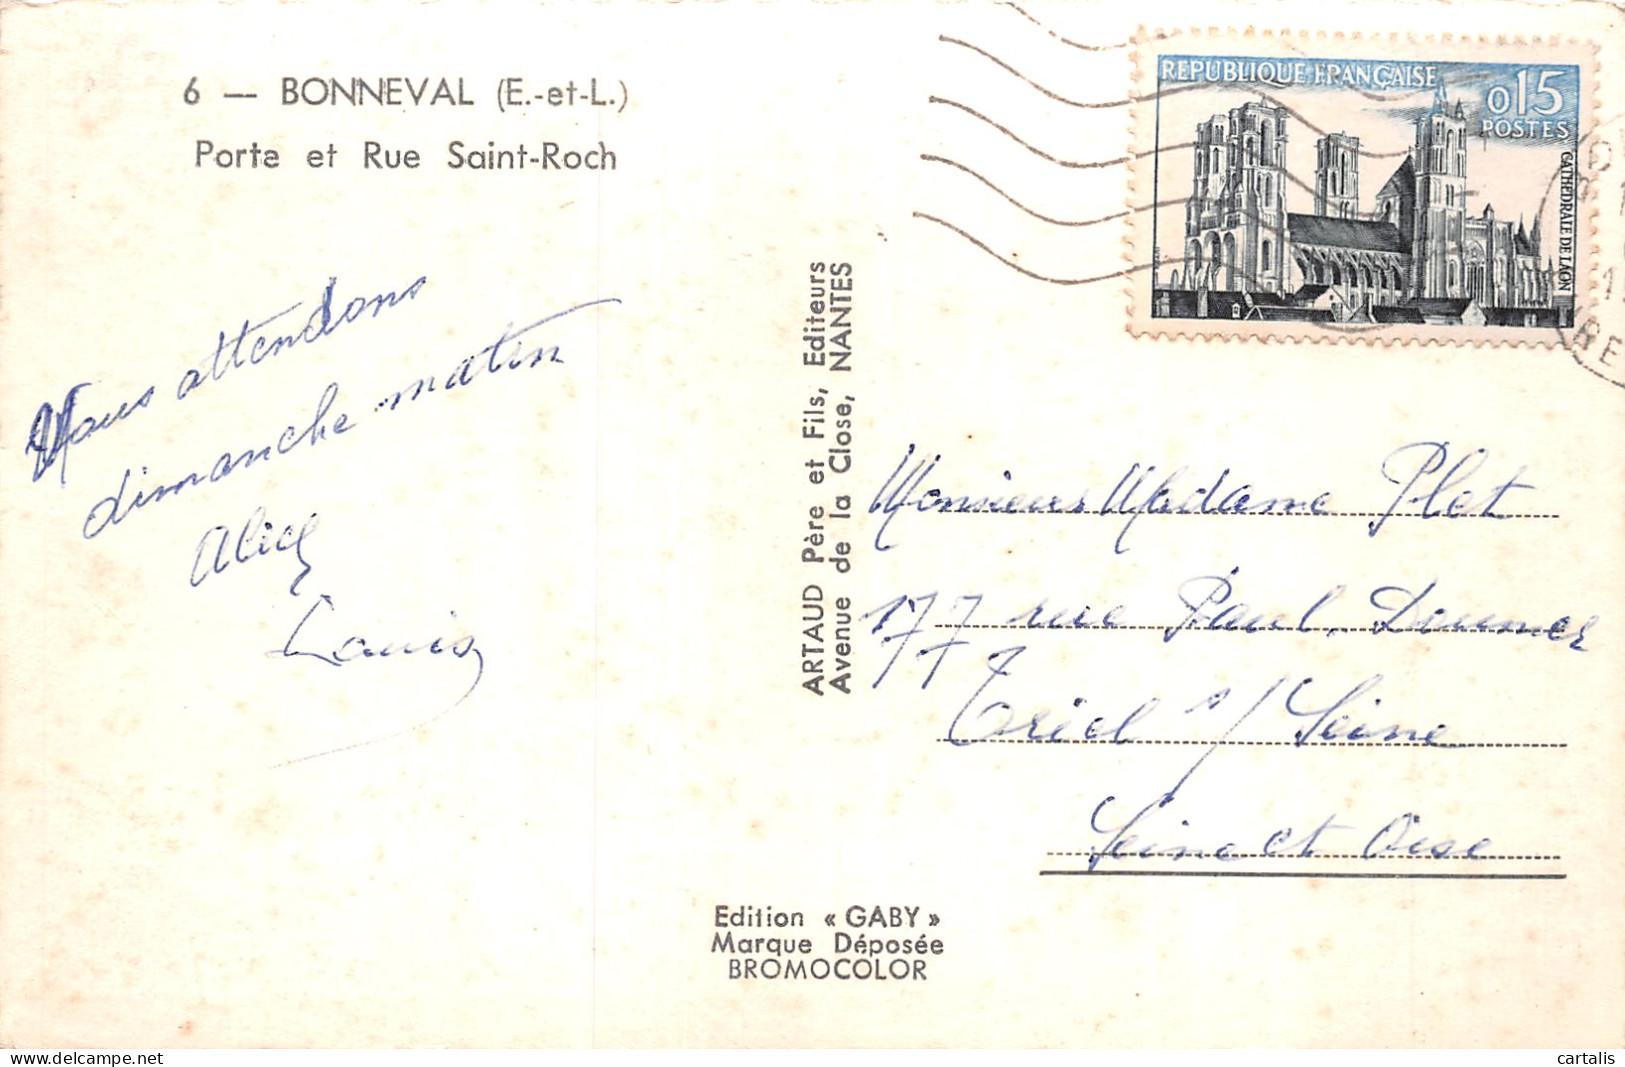 6 — BONNEVAL (E.-et-L.)
Porte et Rue Saint-Roch
Vous attendons
dimanche matin
Alice
Louis
ARTAUD Père et Fils, Editeurs
Avenue de la Close, NANTES
REPUBLIQUE FRANÇAISE
0,15
POSTES
CATHEDRALE DE LAON
Monsieur Madame Plet
177 rue Paul Doumer
Triel s/ Seine
Seine et Oise
Edition « GABY »
Marque Déposée
BROMOCOLOR
delcampe.net
cartalis